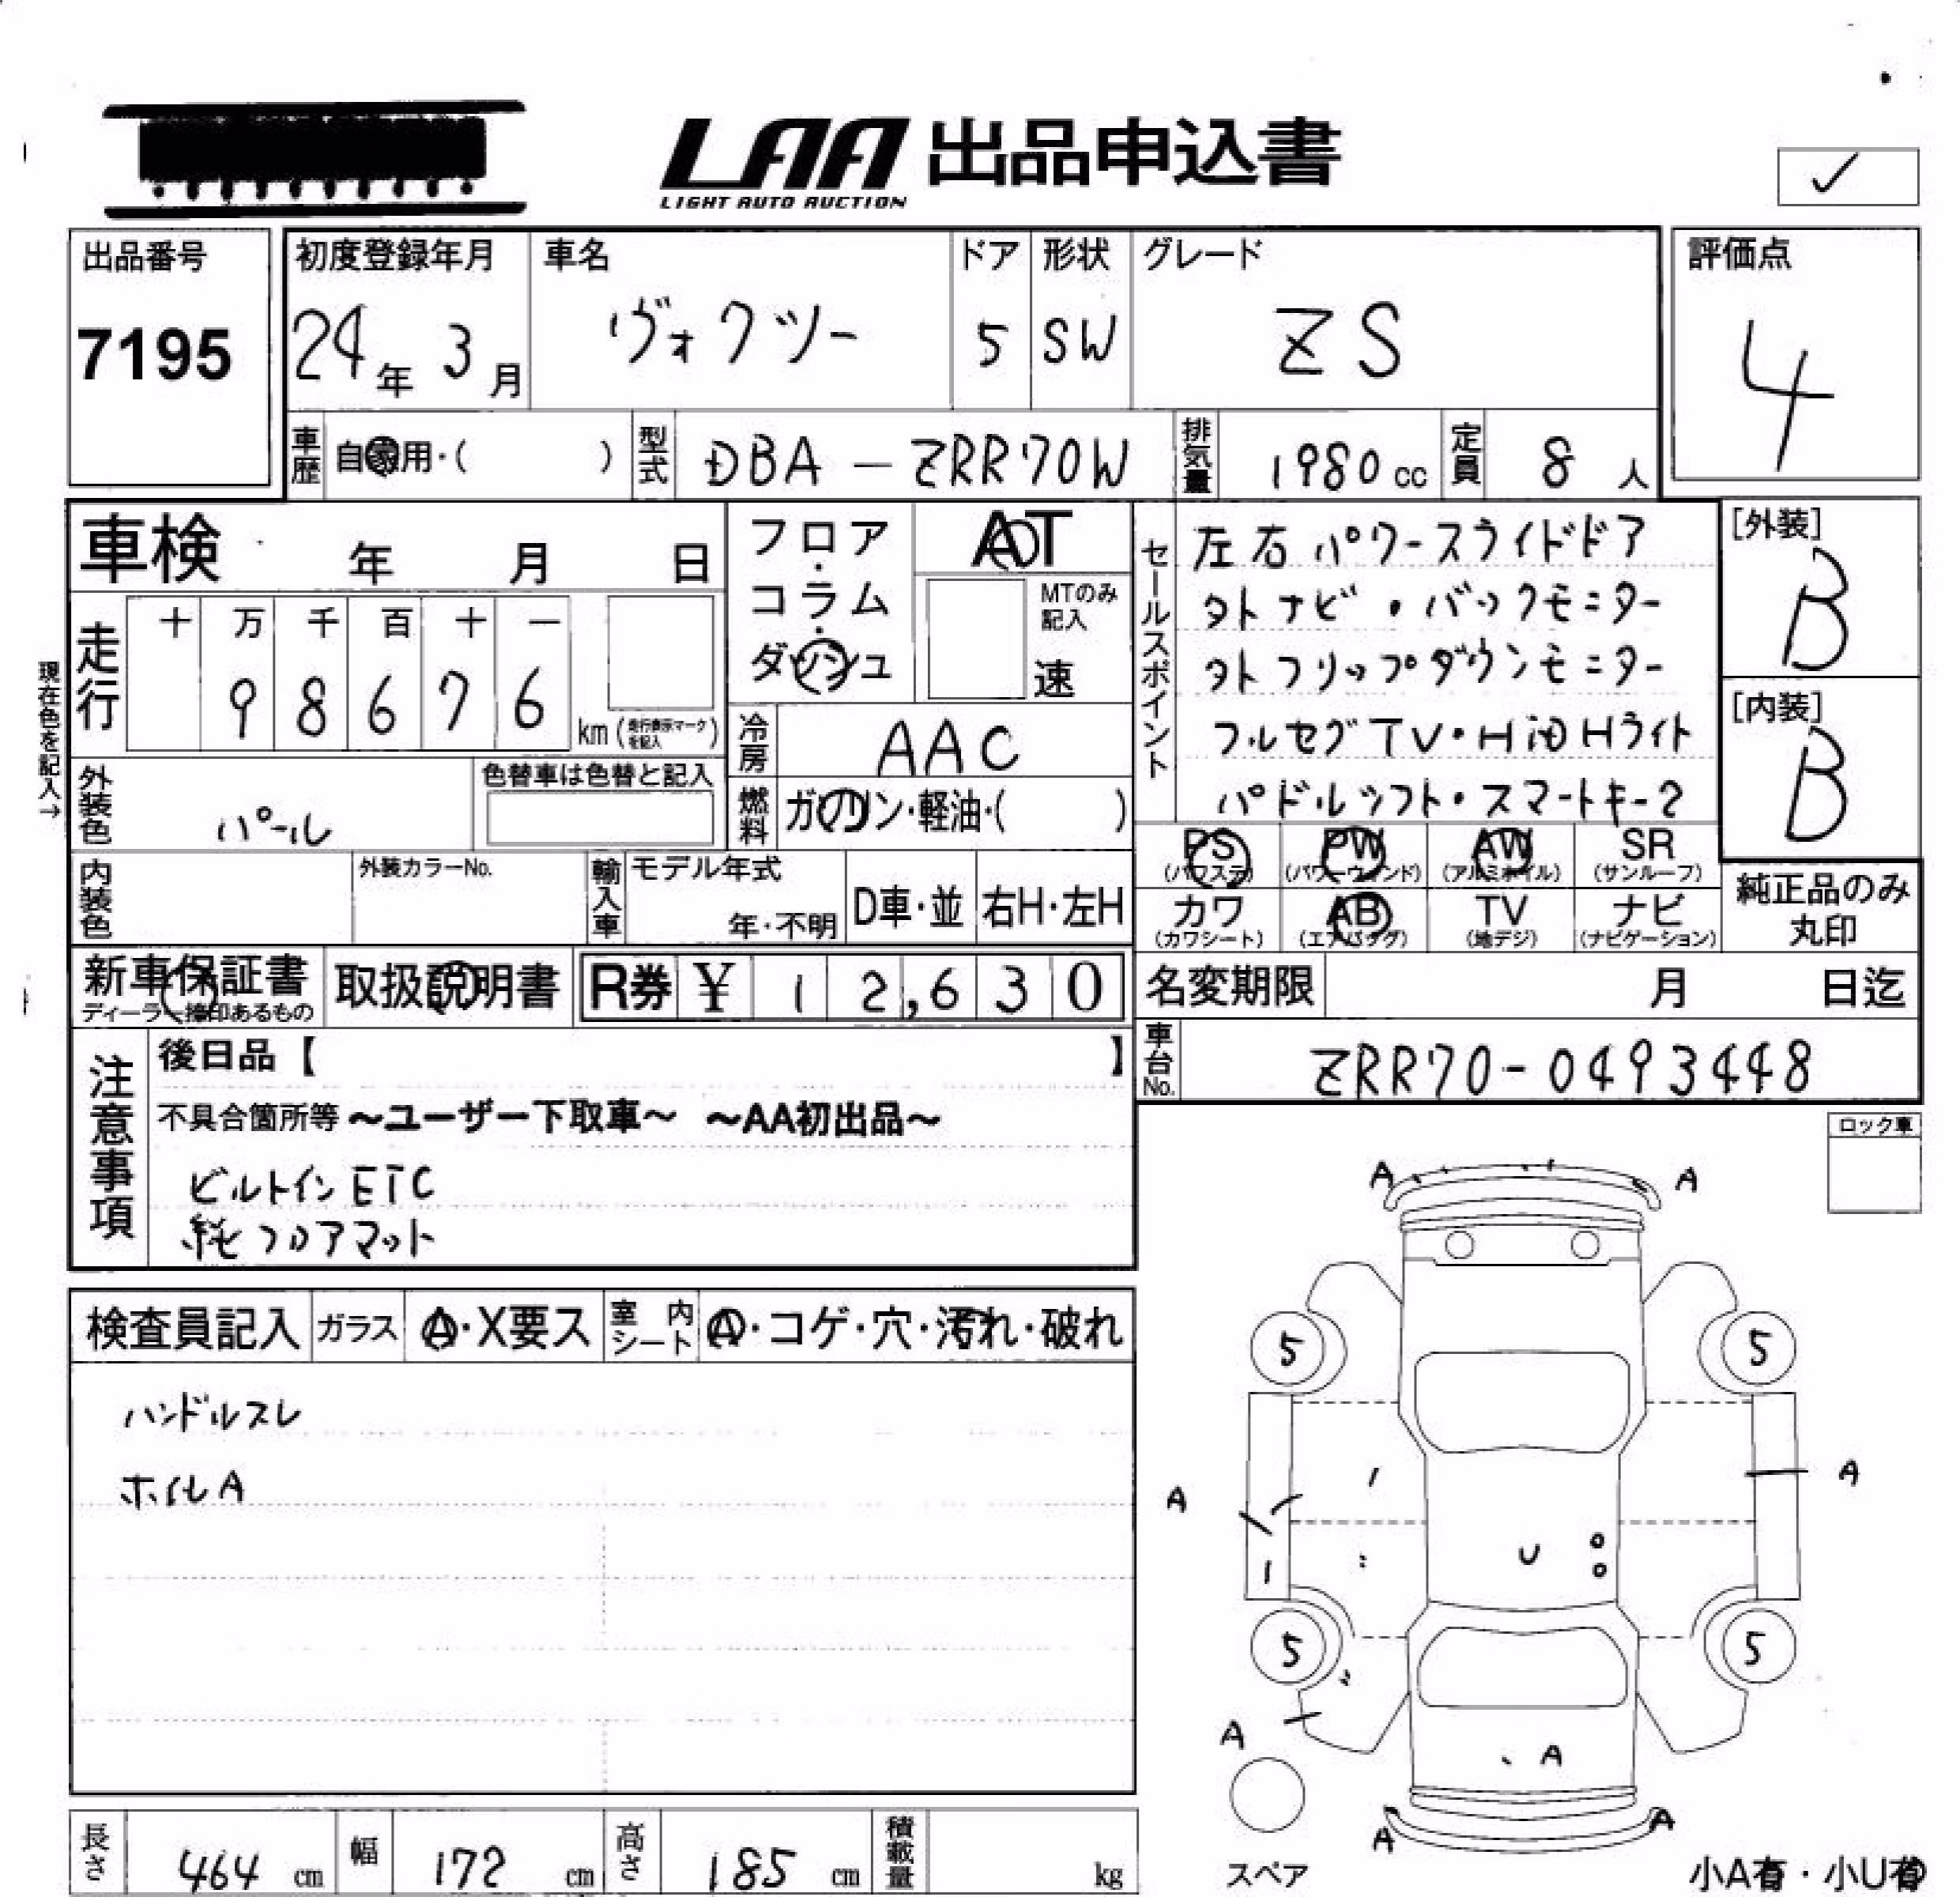 LAA 出品申込書
LIGHT AUTO AUCTION
✓
出品番号
7195
初度登録年月
24年 3月
車名
ヴォクツー
ドア
5
形状
SW
グレード
ZS
評価点
4
車歴
自家用・( )
型式
DBA-ZRR70W
排気量
1980cc
定員
8人
車検 年 月 日
走行
十 万 千 百 十 一
9 8 6 7 6
km (走行表示マークを記入)
現在色を記入→
フロア・コラム・ダッシュ
AT
MTのみ記入
速
冷房
AAC
燃料
ガソリン・軽油・( )
外装色
パール
色替車は色替と記入
内装色
外装カラーNo.
輸入車
モデル年式
年・不明
D車・並
右H・左H
セールスポイント
左右パワースライドドア
タトナビ・バックモニター
タトフリップダウンモニター
フルセグTV・HiDHライト
パドルシフト・スマートキー2
[外装]
B
[内装]
B
PS (パワステ)
PW (パワーウィンド)
AW (アルミホイル)
SR (サンルーフ)
カワ (カワシート)
AB (エアバッグ)
TV (地デジ)
ナビ (ナビゲーション)
純正品のみ
丸印
新車保証書
ディーラー捺印あるもの
取扱説明書
R券 ¥12,630
名変期限 月 日迄
車台No.
ZRR70-0493448
注意事項
後日品【 】
不具合箇所等 〜ユーザー下取車〜 〜AA初出品〜
ビルトインETC
純フロアマット
ロック車
検査員記入
ガラス
A・X要ス
室内シート
A・コゲ・穴・汚れ・破れ
ハンドルスレ
ホイルA
A A
5 5
A A
U
5 5
A
A
A A
スペア
長さ 464 cm
幅 172 cm
高さ 185 cm
積載量 kg
小A有・小U有